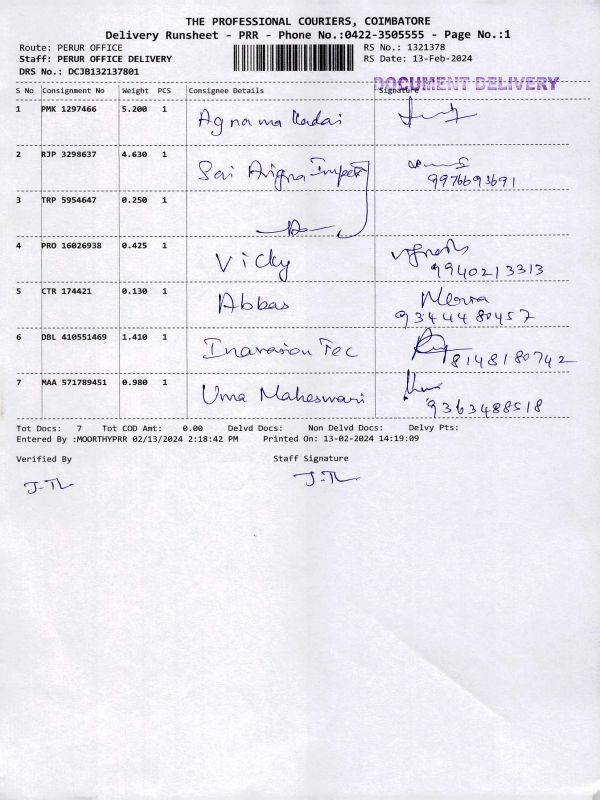 THE PROFESSIONAL COURIERS, COIMBATORE
Delivery Runsheet - PRR - Phone No.:0422-3505555 - Page No.:1
Route: PERUR OFFICE RS No.: 1321378
Staff: PERUR OFFICE DELIVERY RS Date: 13-Feb-2024
DRS No.: DCJB132137801
DOCUMENT DELIVERY
S No Consignment No Weight PCS Consignee Details Signature
1 PMK 1297466 5.200 1 Agnama Kadai
2 RJP 3298637 4.630 1 Sai Arigna Impex
9976693691
3 TRP 5954647 0.250 1
4 PRO 16026938 0.425 1 Vicky
9940213313
5 CTR 174421 0.130 1 Abbas
9344480457
6 DBL 410551469 1.410 1 Inavasion Tec
8148180742
7 MAA 571789451 0.980 1 Uma Maheswari
9363488518
Tot Docs: 7 Tot COD Amt: 0.00 Delvd Docs: Non Delvd Docs: Delvy Pts:
Entered By :MOORTHYPRR 02/13/2024 2:18:42 PM Printed On: 13-02-2024 14:19:09
Verified By Staff Signature